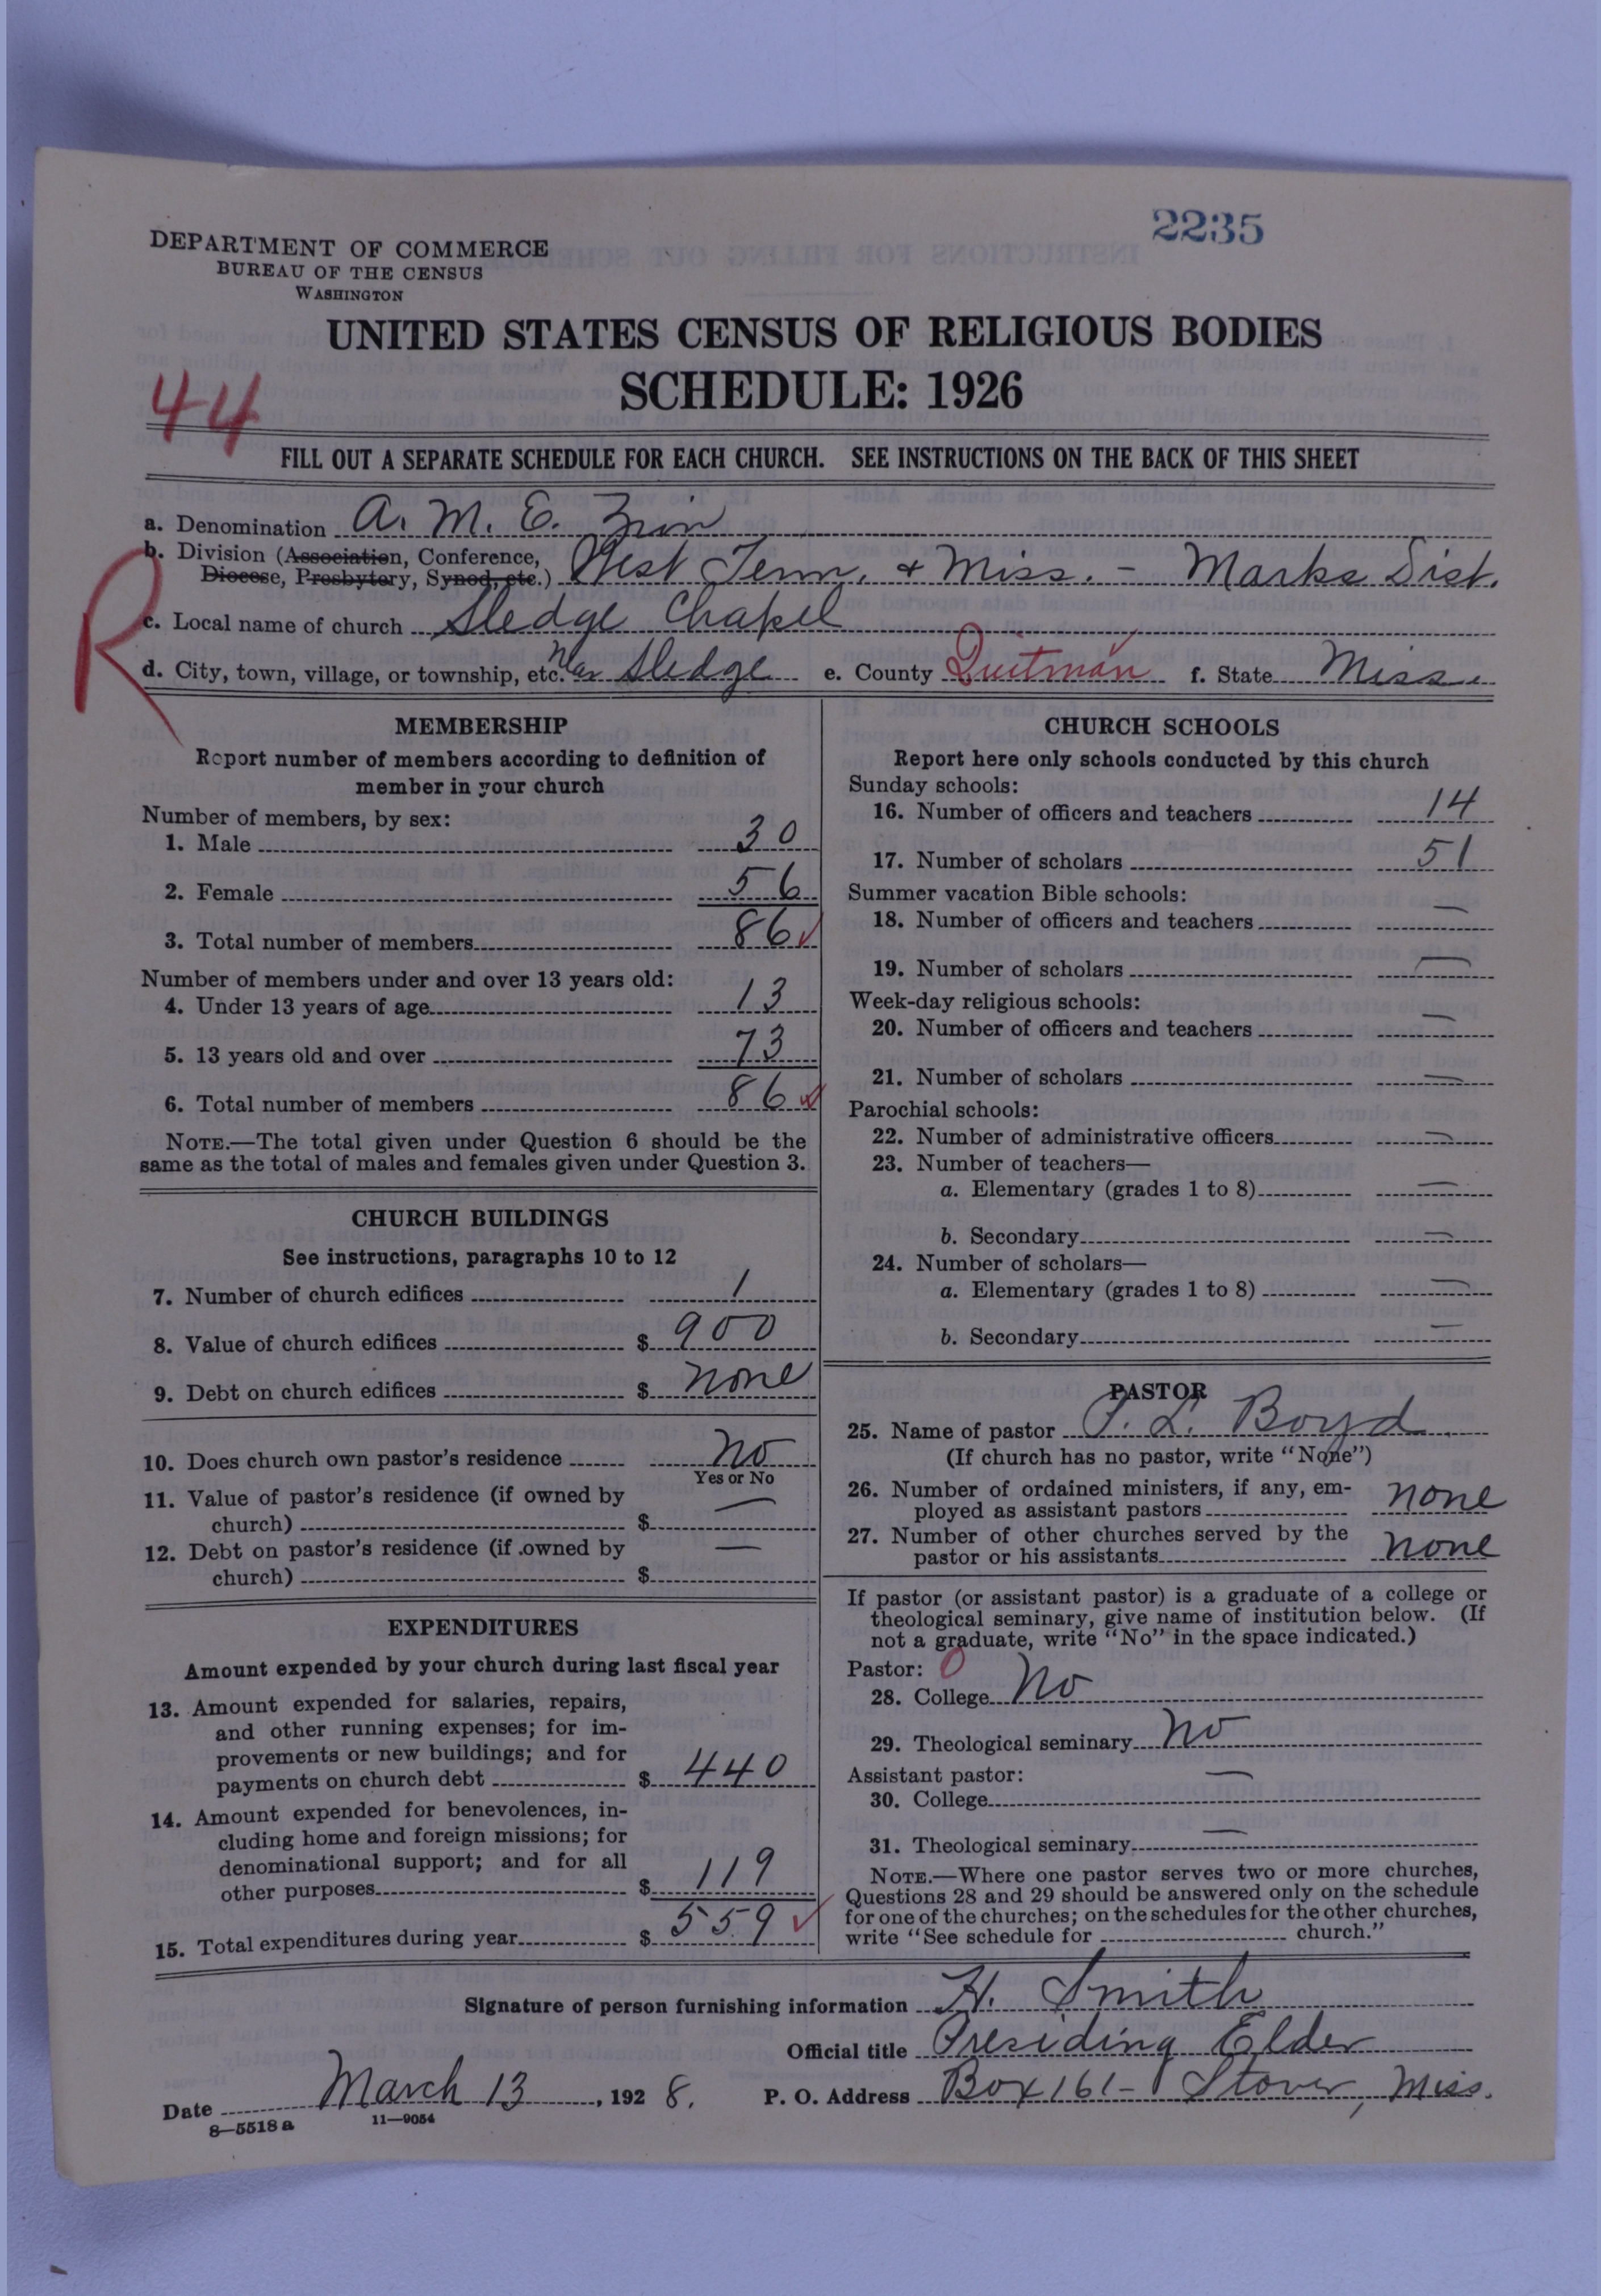 2235
DEPARTMENT OF COMMERCE
BUREAU OF THE CENSUS
WASHINGTON
UNITED STATES CENSUS OF RELIGIOUS BODIES
SCHEDULE: 1926
44
FILL OUT A SEPARATE SCHEDULE FOR EACH CHURCH. SEE INSTRUCTIONS ON THE BACK OF THIS SHEET
a. Denomination A. M. E. Zion
b. Division (Association, Conference, Diocese, Presbytery, Synod, etc.) West Tenn. & Miss. - Marks Dist.
R
c. Local name of church Sledge Chapel
d. City, town, village, or township, etc. Near Sledge e. County Quitman f. State Miss.
MEMBERSHIP
Report number of members according to definition of
member in your church
Number of members, by sex:
1. Male 30
2. Female 56
3. Total number of members 86 ✓
Number of members under and over 13 years old:
4. Under 13 years of age 13
5. 13 years old and over 73
6. Total number of members 86 ✓
NOTE.—The total given under Question 6 should be the
same as the total of males and females given under Question 3.
CHURCH BUILDINGS
See instructions, paragraphs 10 to 12
7. Number of church edifices 1
8. Value of church edifices $ 900
9. Debt on church edifices $ none
10. Does church own pastor's residence No
Yes or No
11. Value of pastor's residence (if owned by
church) $ —
12. Debt on pastor's residence (if owned by
church) $ —
EXPENDITURES
Amount expended by your church during last fiscal year
13. Amount expended for salaries, repairs,
and other running expenses; for im-
provements or new buildings; and for
payments on church debt $ 440
14. Amount expended for benevolences, in-
cluding home and foreign missions; for
denominational support; and for all
other purposes $ 119
15. Total expenditures during year $ 559 ✓
CHURCH SCHOOLS
Report here only schools conducted by this church
Sunday schools:
16. Number of officers and teachers 14
17. Number of scholars 51
Summer vacation Bible schools:
18. Number of officers and teachers —
19. Number of scholars —
Week-day religious schools:
20. Number of officers and teachers —
21. Number of scholars —
Parochial schools:
22. Number of administrative officers —
23. Number of teachers—
a. Elementary (grades 1 to 8) —
b. Secondary —
24. Number of scholars—
a. Elementary (grades 1 to 8) —
b. Secondary —
PASTOR
25. Name of pastor L. Boyd
(If church has no pastor, write "None")
26. Number of ordained ministers, if any, em-
ployed as assistant pastors none
27. Number of other churches served by the
pastor or his assistants none
If pastor (or assistant pastor) is a graduate of a college or
theological seminary, give name of institution below. (If
not a graduate, write "No" in the space indicated.)
Pastor: 0
28. College No
29. Theological seminary No
Assistant pastor:
30. College —
31. Theological seminary —
NOTE.—Where one pastor serves two or more churches,
Questions 28 and 29 should be answered only on the schedule
for one of the churches; on the schedules for the other churches,
write "See schedule for church."
Signature of person furnishing information H. Smith
Official title Presiding Elder
Date March 13, 1928. P. O. Address Box 161- Stover, Miss.
8—5518 a 11—9054